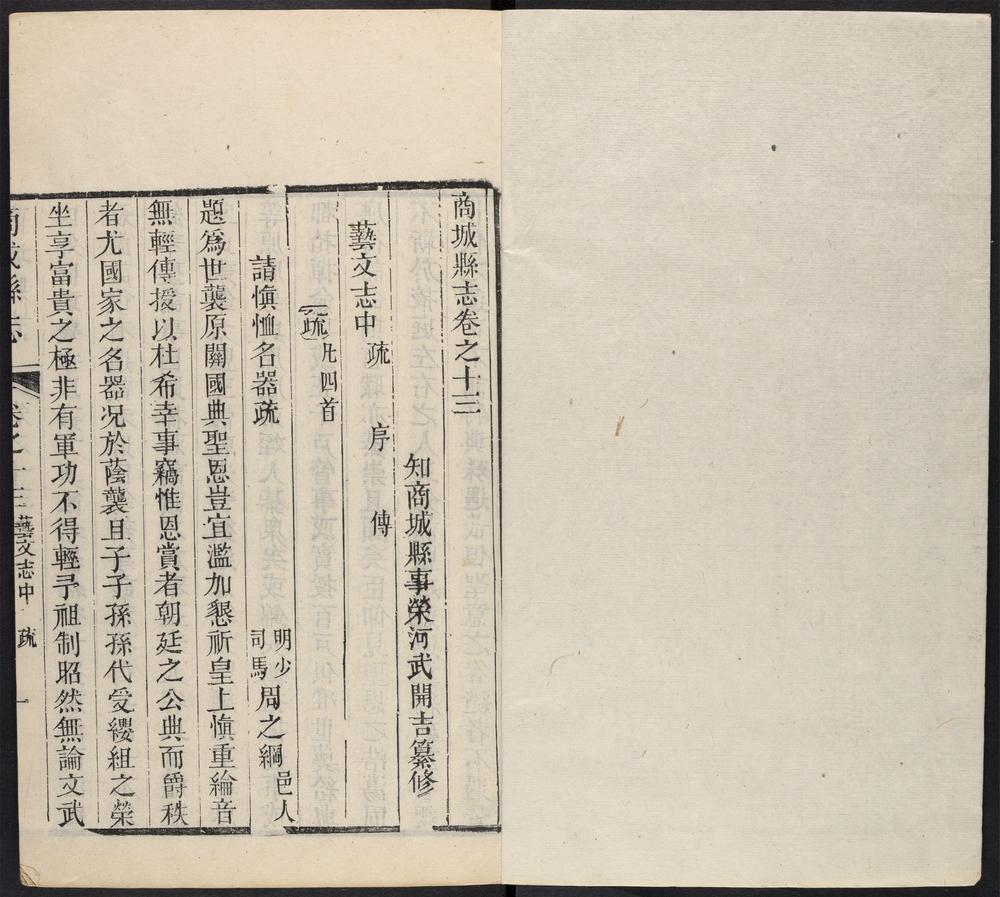 商城縣志卷之十三
知商城縣事榮河武開吉纂修
藝文志中 疏 序 傳
疏 凡四首
請愼恤名器疏 明少司馬周之綱邑人
題爲世襲原關國典聖恩豈宜濫加懇祈皇上愼重綸音
無輕傳授以杜希幸事竊惟恩賞者朝廷之公典而爵秩
者尤國家之名器况於蔭襲且子子孫孫代受纓組之榮
坐享富貴之極非有軍功不得輕予祖制昭然無論文武
商城縣志 卷之十三 藝文志中 疏 一